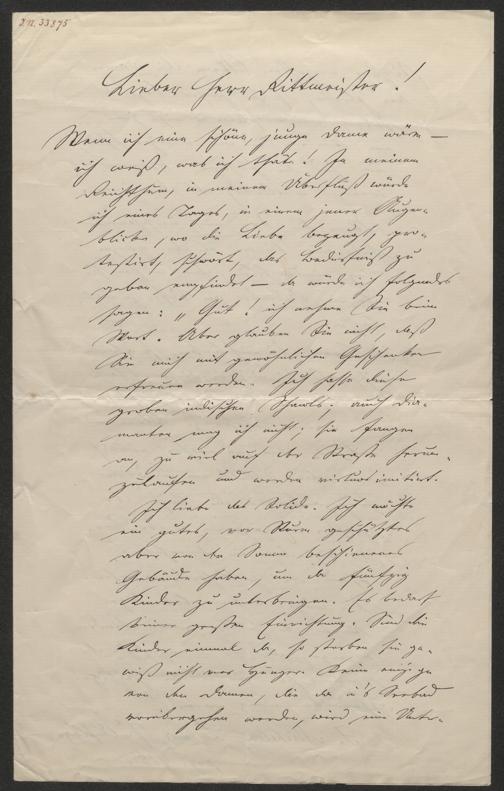 I.N. 33875
Lieber Herr Rittmeister!
Wenn ich eine schöne, junge Dame wäre —
ich weiß, was ich thäte! In meinem
Reichthum, in meinem Überfluß würde
ich eines Tages, in einem jener Augen-
blicke, wo die Liebe bezeugt, pro-
testirt, schwört, das Bedürfniß zu
geben empfindet — da würde ich folgendes
sagen: „Gut! ich nehme Sie beim
Wort. Aber glauben Sie nicht, daß
Sie mich mit gewöhnlichen Geschenken
erfreuen werden. Ich hasse diese
groben indischen Shawls. auch Dia-
manten mag ich nicht; sie fangen
an, zu viel auf der Straße herum-
zulaufen und werden imitirt.
Ich liebe das Solide. Ich möchte
ein gutes, vor Sturm geschütztes
aber von der Sonne beschienenes
Gebäude haben, um da fünfzig
Kinder zu unterbringen. Es bedarf
keiner großen Einrichtung. Sind die
Kinder einmal da, so sterben sie ge-
wiß nicht vor Hunger. Keine einzige
von den Damen, die da in's Seebad
vorübergehen werden, wird eine Unter-